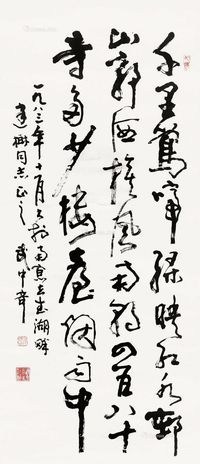 千里鶯啼綠映紅水邨
山郭酒旗風南朝四百八十
寺多少樓臺烟雨中
一九八三年十月於南京玄武湖畔
同志正之 武中奇